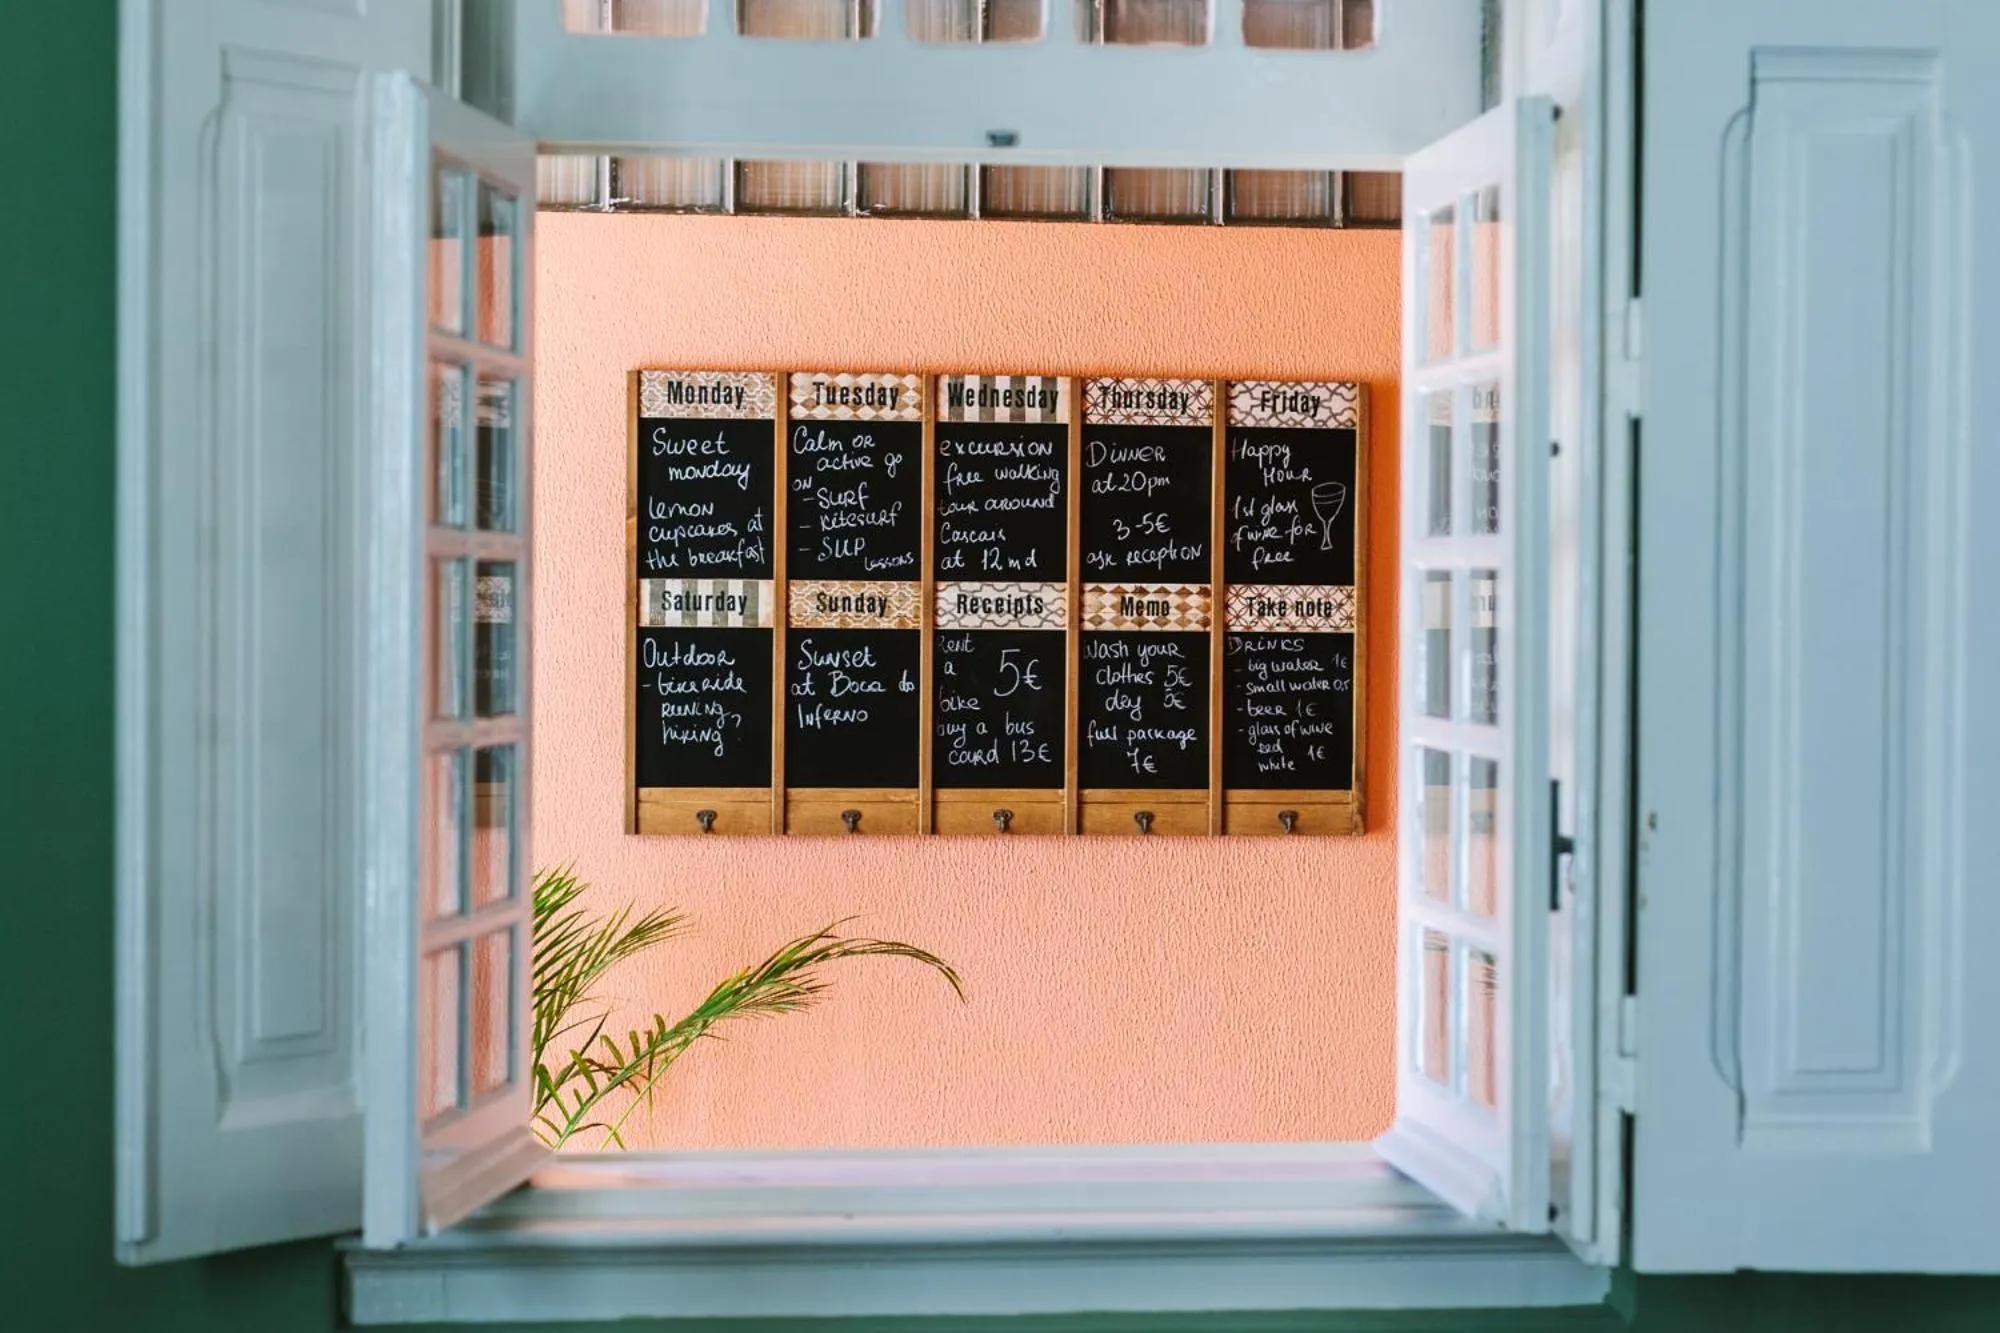 Monday
Sweet
monday
lemon
cupcakes at
the breakfast
Tuesday
Calm or
active go
on
- Surf
- kitesurf
- SUP
lessons
Wednesday
excursion
free walking
tour around
Cascais
at 12 md
Thursday
Dinner
at 20 pm
3-5€
ask reception
Friday
Happy
Hour
1st glass
of wine for
free
Saturday
Outdoor
- bike ride
running
hiking?
Sunday
Sunset
at Boca do
Inferno
Receipts
Rent
a
bike
5€
buy a bus
card 13€
Memo
Wash your
clothes 5€
dry 5€
full package
7€
Take note
Drinks
- big water 1€
- small water 0,5
- beer 1€
- glass of wine
red
white 1€